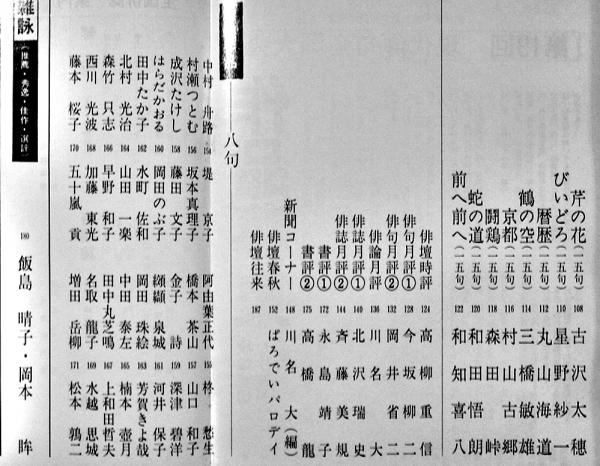 芹の花(一五句) 108 古沢太穂
びいどろ(一五句) 110 星野紗一
暦暦(一五句) 112 丸山海道
鶴の空(一五句) 114 三橋敏雄
京都(一五句) 116 村山古郷
闘鶏(一五句) 118 森田峠
蛇の道(一五句) 120 和田悟朗
前へ前へ(一五句) 122 和知喜八
俳壇時評 124 高柳重信
俳句月評① 128 今坂柳二
俳句月評② 132 岡井省二
俳論月評 136 川名大
俳誌月評① 140 北沢瑞史
俳誌月評② 144 斉藤美規
書評① 172 永島靖子
書評② 175 高橋龍
新聞コーナー 148 川名大(編)
俳壇春秋 152 ぱろでいパロデイ
俳壇往来 187
八句
中村舟路 154 堤京子 阿由葉正代 155 柊愁生
村瀬つとむ 156 坂本真理子 橋本茶山 157 山口和子
成沢たけし 158 藤田文子 金子詩 159 深津碧洋
はらだかおる 160 岡田のぶ子 纐纈泉城 161 河井保子
田中たか子 162 水町佐和 岡田珠絵 163 芳賀きよ哉
北村光治 164 山田一楽 中田泰左 165 楠本壺月
森竹只志 166 早野和子 田中丸芝鳴 167 上和田哲夫
西川光波 168 加藤東光 名取龍子 169 水越思城
藤本桜子 170 五十嵐貢 増田岳柳 171 松本鶉二
雑詠(推薦・秀逸・佳作・選評) 180 飯島晴子・岡本眸